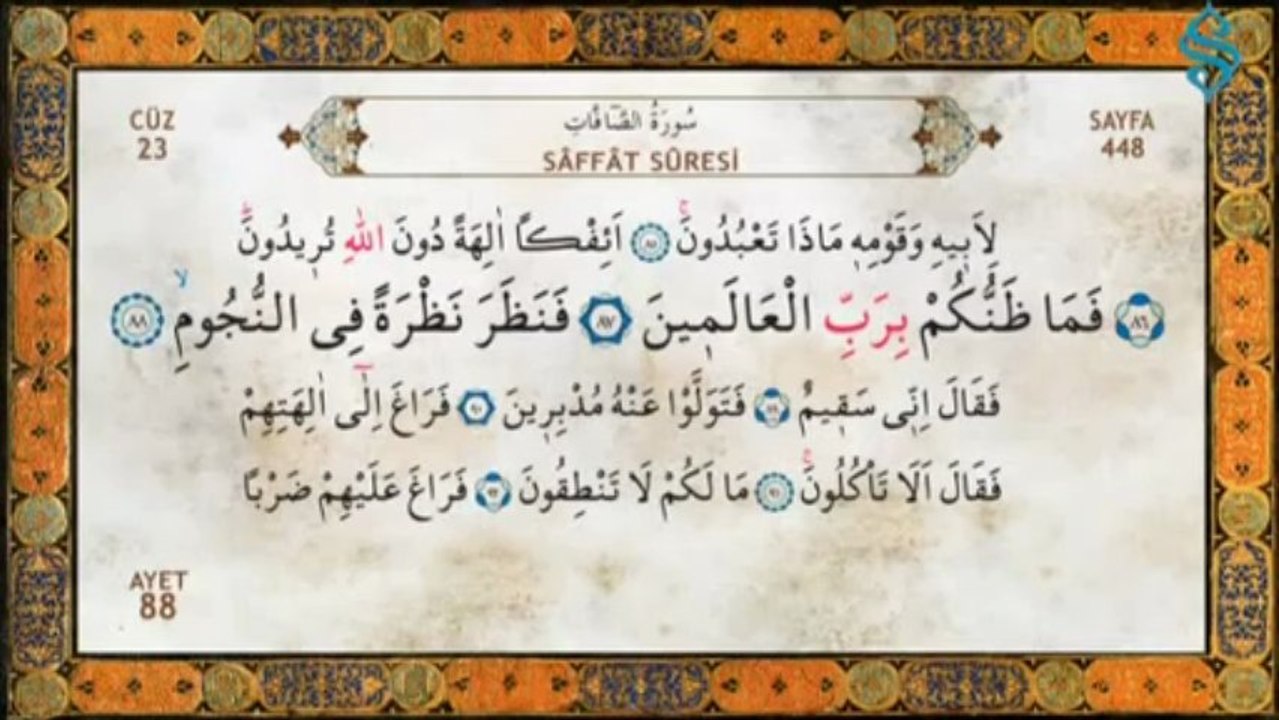 CÜZ
23
سُورَةُ الصَّافَّاتِ
SÂFFÂT SÛRESİ
SAYFA
448
لِاَبٖيهِ وَقَوْمِهٖ مَاذَا تَعْبُدُونَۚ ﴿٨٥﴾ اَئِفْكًا اٰلِهَةً دُونَ اللّٰهِ تُرٖيدُونَؕ
﴿٨٦﴾ فَمَا ظَنُّكُمْ بِرَبِّ الْعَالَمٖينَ ﴿٨٧﴾ فَنَظَرَ نَظْرَةً فِى النُّجُومِۙ ﴿٨٨﴾
فَقَالَ اِنّٖى سَقٖيمٌ ﴿٨٩﴾ فَتَوَلَّوْا عَنْهُ مُدْبِرٖينَ ﴿٩٠﴾ فَرَاغَ اِلٰٓى اٰلِهَتِهِمْ
فَقَالَ اَلَا تَاْكُلُونَۚ ﴿٩١﴾ مَا لَكُمْ لَا تَنْطِقُونَ ﴿٩٢﴾ فَرَاغَ عَلَيْهِمْ ضَرْبًا
AYET
88